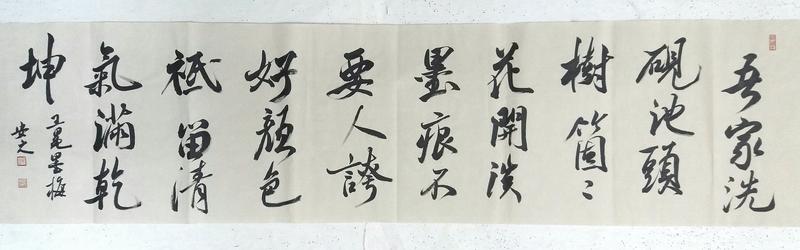 吾家洗
硯池頭
樹箇〻
花開淡
墨痕不
要人誇
好顏色
祗留清
氣滿乾
坤
王冕墨梅
安之